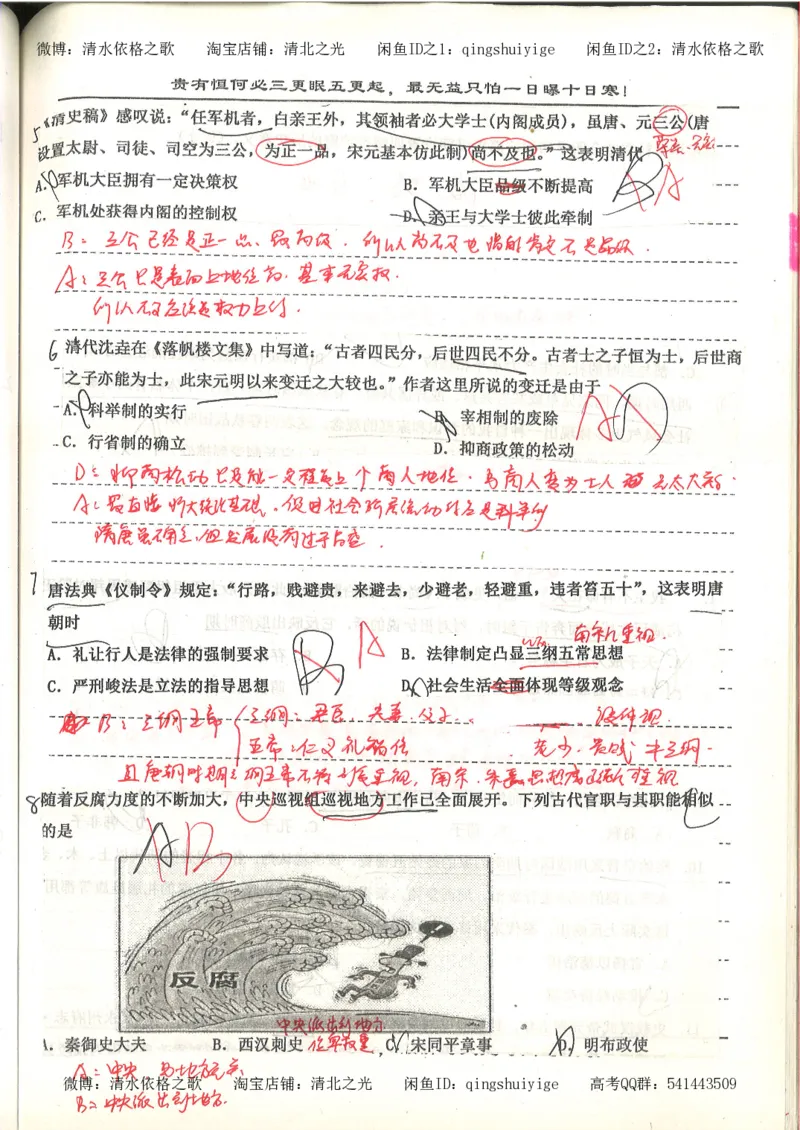 微博：清水依格之歌 淘宝店铺：清北之光 闲鱼ID之1：qingshuiyige 闲鱼ID之2：清水依格之歌
贵有恒何必三更眠五更起，最无益只怕一日曝十日寒！
5《清史稿》感叹说：“任军机者，自亲王外，其领袖者必大学士(内阁成员)，虽唐、元三公(唐
设置太尉、司徒、司空为三公，为正一品，宋元基本仿此制)尚不及也。”这表明清代
A．军机大臣拥有一定决策权 B．军机大臣品级不断提高 BA
C．军机处获得内阁的控制权 D．亲王与大学士彼此牵制
B：三公已经是正一品、
A：三公只是表面上地位高．基本无实权．
6 清代沈垚在《落帆楼文集》中写道：“古者四民分，后世四民不分。古者士之子恒为士，后世商
之子亦能为士，此宋元明以来变迁之大较也。”作者这里所说的变迁是由于
A．科举制的实行 B．宰相制的废除
C．行省制的确立 D．抑商政策的松动
7 唐法典《仪制令》规定：“行路，贱避贵，来避去，少避老，轻避重，违者笞五十”，这表明唐
朝时
A．礼让行人是法律的强制要求 B．法律制定凸显三纲五常思想
C．严刑峻法是立法的指导思想 D．社会生活全面体现等级观念
B：三纲五常 三纲：君臣 夫妻 父子
五常：仁义礼智信
8 随着反腐力度的不断加大，中央巡视组巡视地方工作已全面展开。下列古代官职与其职能相似
的是
反腐
中央派出到地方
A．秦御史大夫 B．西汉刺史 位卑权重 C．宋同平章事 D．明布政使
A：中央
B：中央派出到地方．
微博：清水依格之歌 淘宝店铺：清北之光 闲鱼ID：qingshuiyige 高考QQ群：541443509